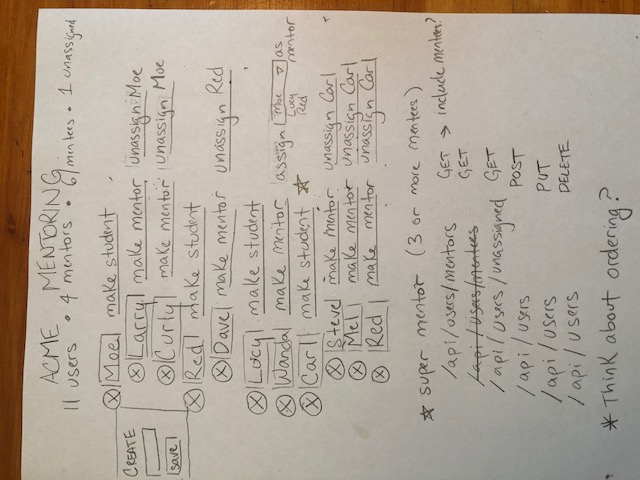 ACME MENTORING
11 users • 4 mentors • 6 mentees • 1 unassigned
CREATE
save
Ⓧ Moe make student
Ⓧ Larry make mentor unassign Moe
Ⓧ Curly make mentor unassign Moe
Ⓧ Red make student
Ⓧ Dave make mentor unassign Red
Ⓧ Lucy make student
Ⓧ Wanda make mentor assign Moe ▽ as mentor
Lucy
Red
Ⓧ Carl make student ☆
Ⓧ Steve make mentor unassign Carl
Ⓧ Mel make mentor unassign Carl
Ⓧ Red make mentor unassign Carl
☆ super mentor (3 or more mentees)
/api/users/mentors GET → include mentees?
/api/users/mentees GET
/api/users/unassigned GET
/api/users POST
/api/users PUT
/api/users DELETE
* Think about ordering?